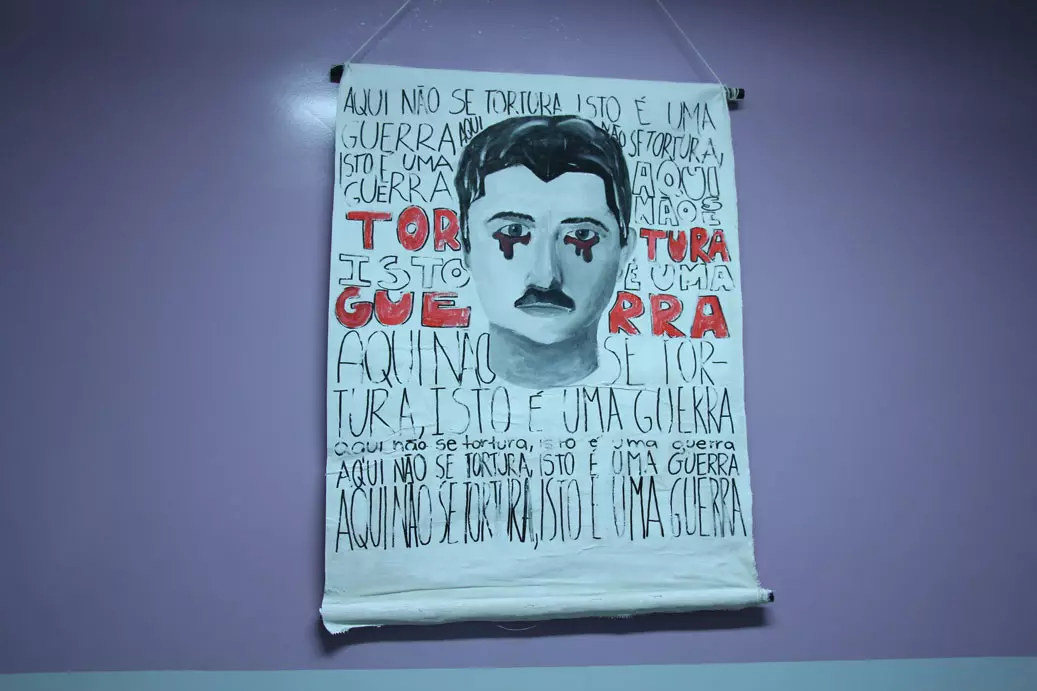 AQUI NÃO SE TORTURA ISTO É UMA
GUERRA AQUI NÃO SE TORTURA,
ISTO É UMA
GUERRA AQUI
NÃO SE
TORTURA
ISTO É UMA
GUERRA
AQUI NÃO SE TOR-
TURA, ISTO É UMA GUERRA
aqui não se tortura, isto é uma guerra
AQUI NÃO SE TORTURA, ISTO É UMA GUERRA
AQUI NÃO SE TORTURA, ISTO É UMA GUERRA